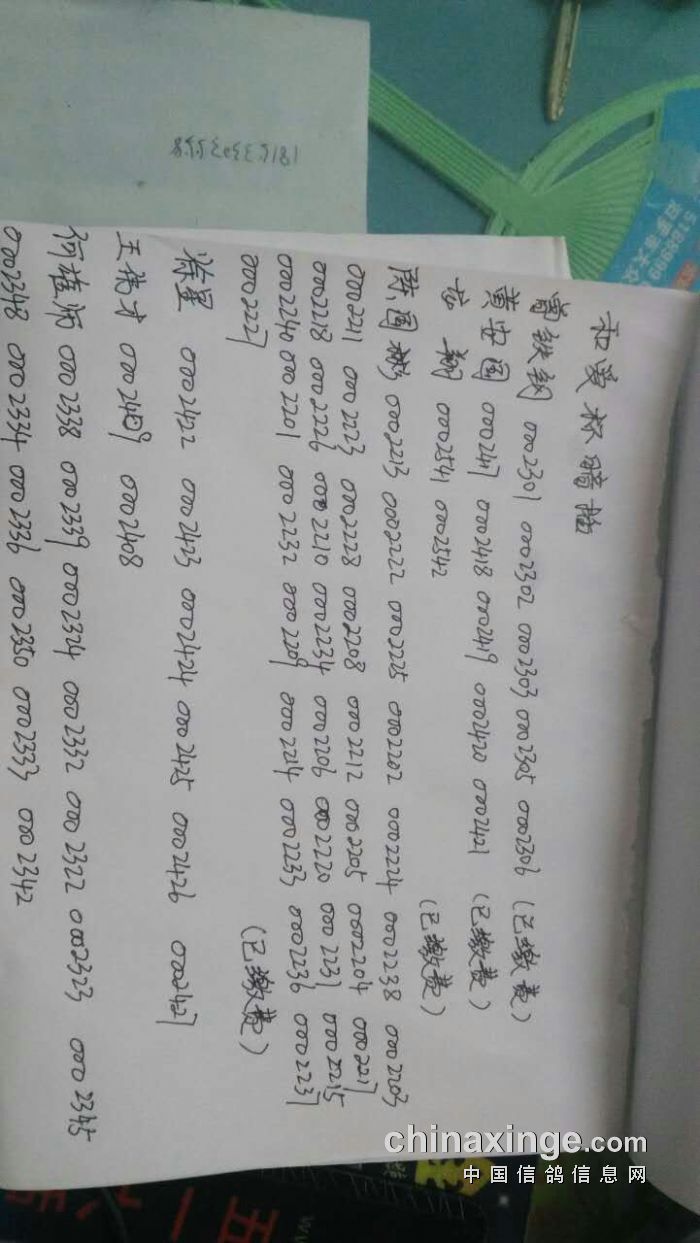 和爱杯暗插
曾铁钢 0002301 0002302 0002303 0002305 0002306 (已缴费)
黄安国 0002417 0002418 0002419 0002420 0002421 (已缴费)
0002541 0002542 (已缴费)
陈国彬 0002213 0002222 0002225 0002202 0002224 0002238 0002203
0002211 0002223 0002228 0002208 0002212 0002205 0002204 0002217
0002218 0002226 0002210 0002234 0002206 0002220 0002231 0002215
0002240 0002201 0002232 0002209 0002214 0002233 0002236 0002237
0002227 (已缴费)
徐星 0002422 0002423 0002424 0002425 0002426 0002427
王伟才 0002409 0002408
何雄师 0002338 0002339 0002324 0002332 0002322 0002323 0002345
0002348 0002334 0002336 0002350 0002333 0002342
18153303558
chinaxinge.com
中国信鸽信息网
五一